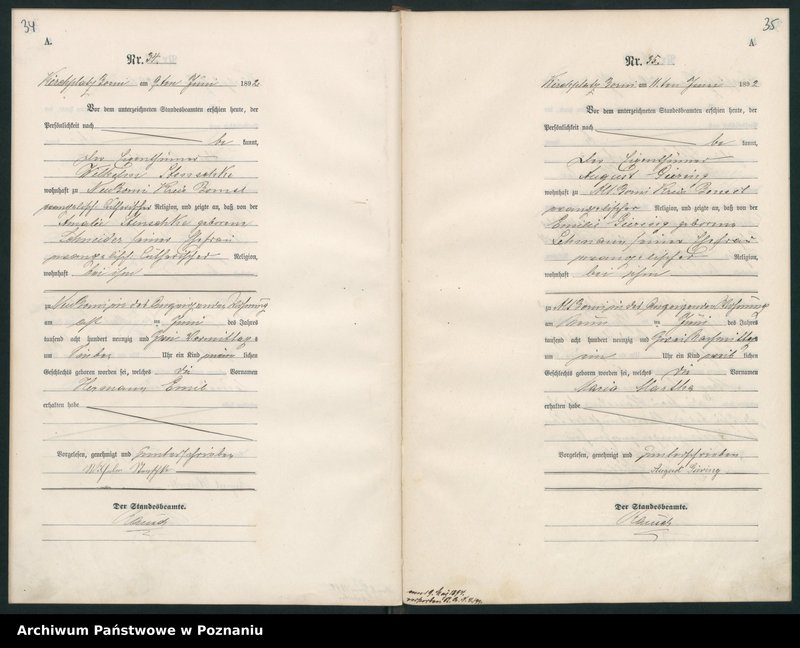 34
A.
Nr. 34.
Kirchplatz Bomi am 9ten Juni 1892
Vor dem unterzeichneten Standesbeamten erschien heute, der
Persönlichkeit nach
be kannt,
der Eigenthümer
Wilhelm
wohnhaft zu Neu Bomi Kreis Bomst
evangelisch lutherischer Religion, und zeigte an, daß von der
Amalie geborene
Schneider seiner Ehefrau
evangelisch lutherischer Religion,
wohnhaft bei ihm
zu Neu Bomi in der Wohnung
am acht im Juni des Jahres
tausend acht hundert neunzig und zwei Vormittags
um sieben Uhr ein Kind männ lichen
Geschlechts geboren worden sei, welches die Vornamen
Hermann Emil
erhalten habe
Vorgelesen, genehmigt und unterschrieben
Wilhelm
Der Standesbeamte.
35
A
Nr. 35.
Kirchplatz Bomi am 11ten Juni 1892
Vor dem unterzeichneten Standesbeamten erschien heute, der
Persönlichkeit nach
be kannt,
der Eigenthümer
August Giering
wohnhaft zu Alt Bomi Kreis Bomst
evangelischer Religion, und zeigte an, daß von der
Emilie Giering geborene
Lehmann seiner Ehefrau
evangelischer Religion,
wohnhaft bei ihm
zu Alt Bomi in der Wohnung
am im Juni des Jahres
tausend acht hundert neunzig und zwei Nachmittags
um Uhr ein Kind weib lichen
Geschlechts geboren worden sei, welches die Vornamen
Maria Martha
erhalten habe
Vorgelesen, genehmigt und unterschrieben
August Giering
Der Standesbeamte.
Archiwum Państwowe w Poznaniu